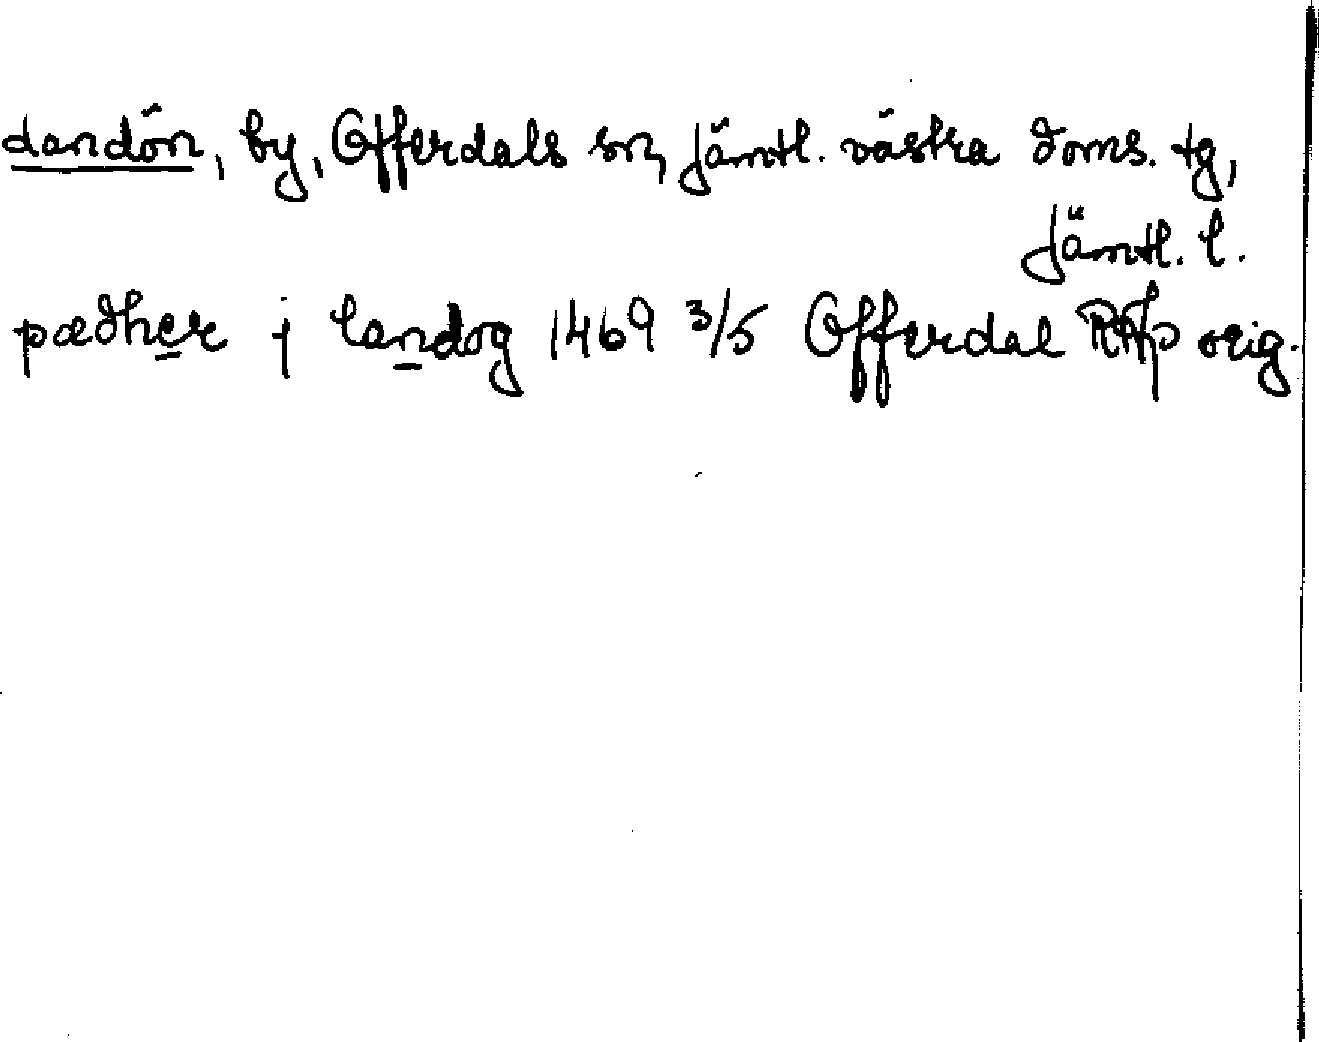 Landön, by, Offerdals sn, Jämtl. västra doms. tg,
Jämtl. l.
pædher j landog 1469 3/5 Offerdal RAp orig.